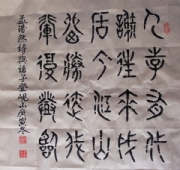 人事有代
謝往來成
古今江山
留勝迹我
輩復登臨
孟浩然詩與諸子登峴山庚寅冬